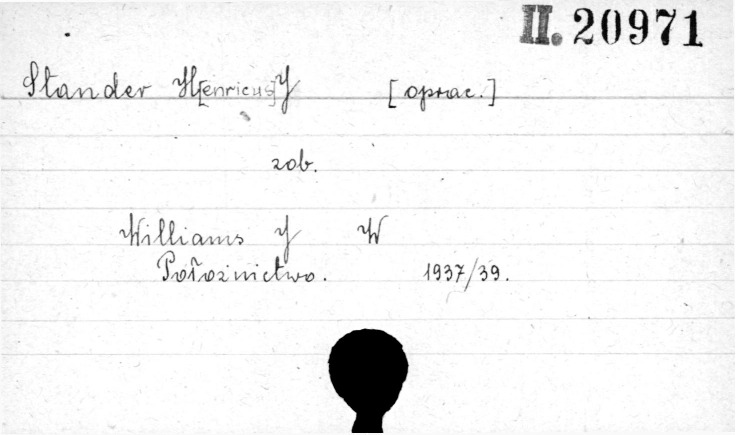 II. 20971
Stander H[enricus] J [oprac.]
zob.
Williams J W
Położnictwo. 1937/39.